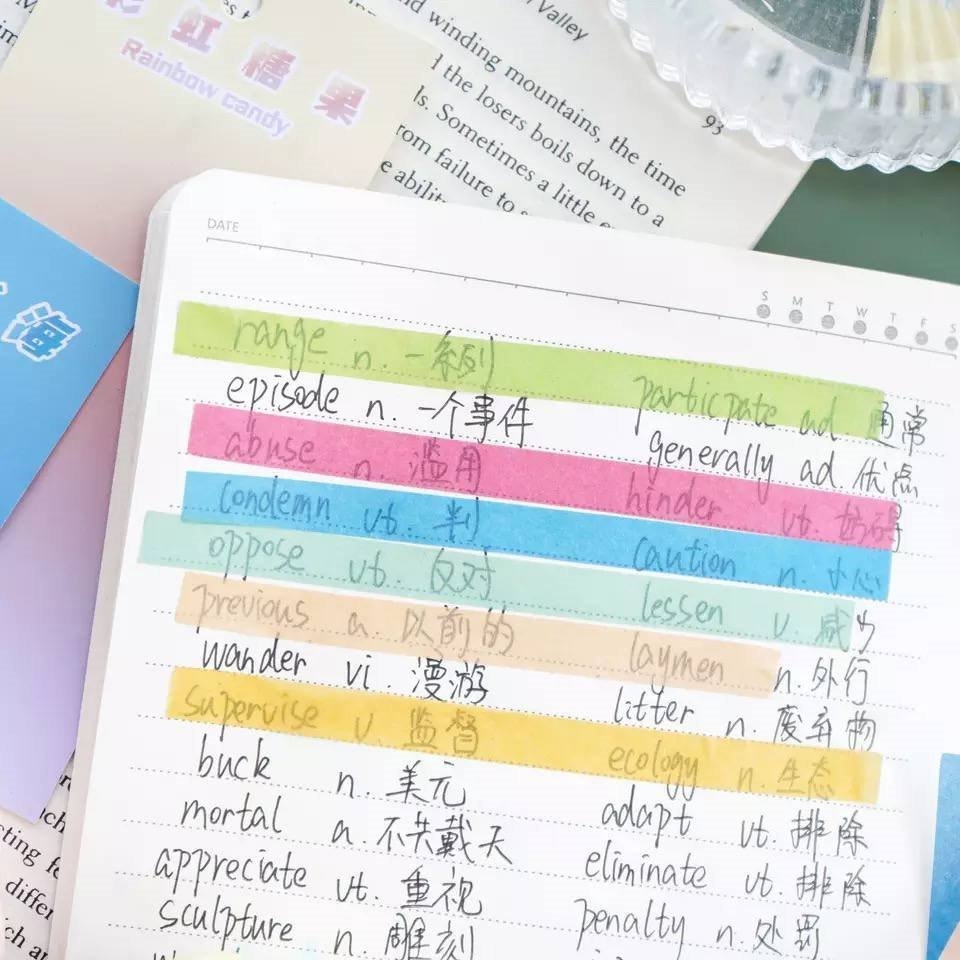 彩虹糖果
Rainbow candy
Valley
nd winding mountains, the time
the losers boils down to a
ls. Sometimes a little
rom failure to
e ability
93
海
DATE
S M T W T F S
range n. 一系列 particpate ad 通常
episode n. 一个事件 generally ad 优点
abuse n. 滥用 hinder vt. 妨碍
condemn vt. 判 caution n. 小心
oppose vt. 反对 lessen v. 减少
previous a. 以前的 laymen n. 外行
wander vi. 漫游 litter n. 废弃物
supervise v. 监督 ecology n. 生态
buck n. 美元 adapt vt. 排除
mortal a. 不共戴天 eliminate vt. 排除
appreciate vt. 重视 penalty n. 处罚
sculpture n. 雕刻
cting
differ
ch